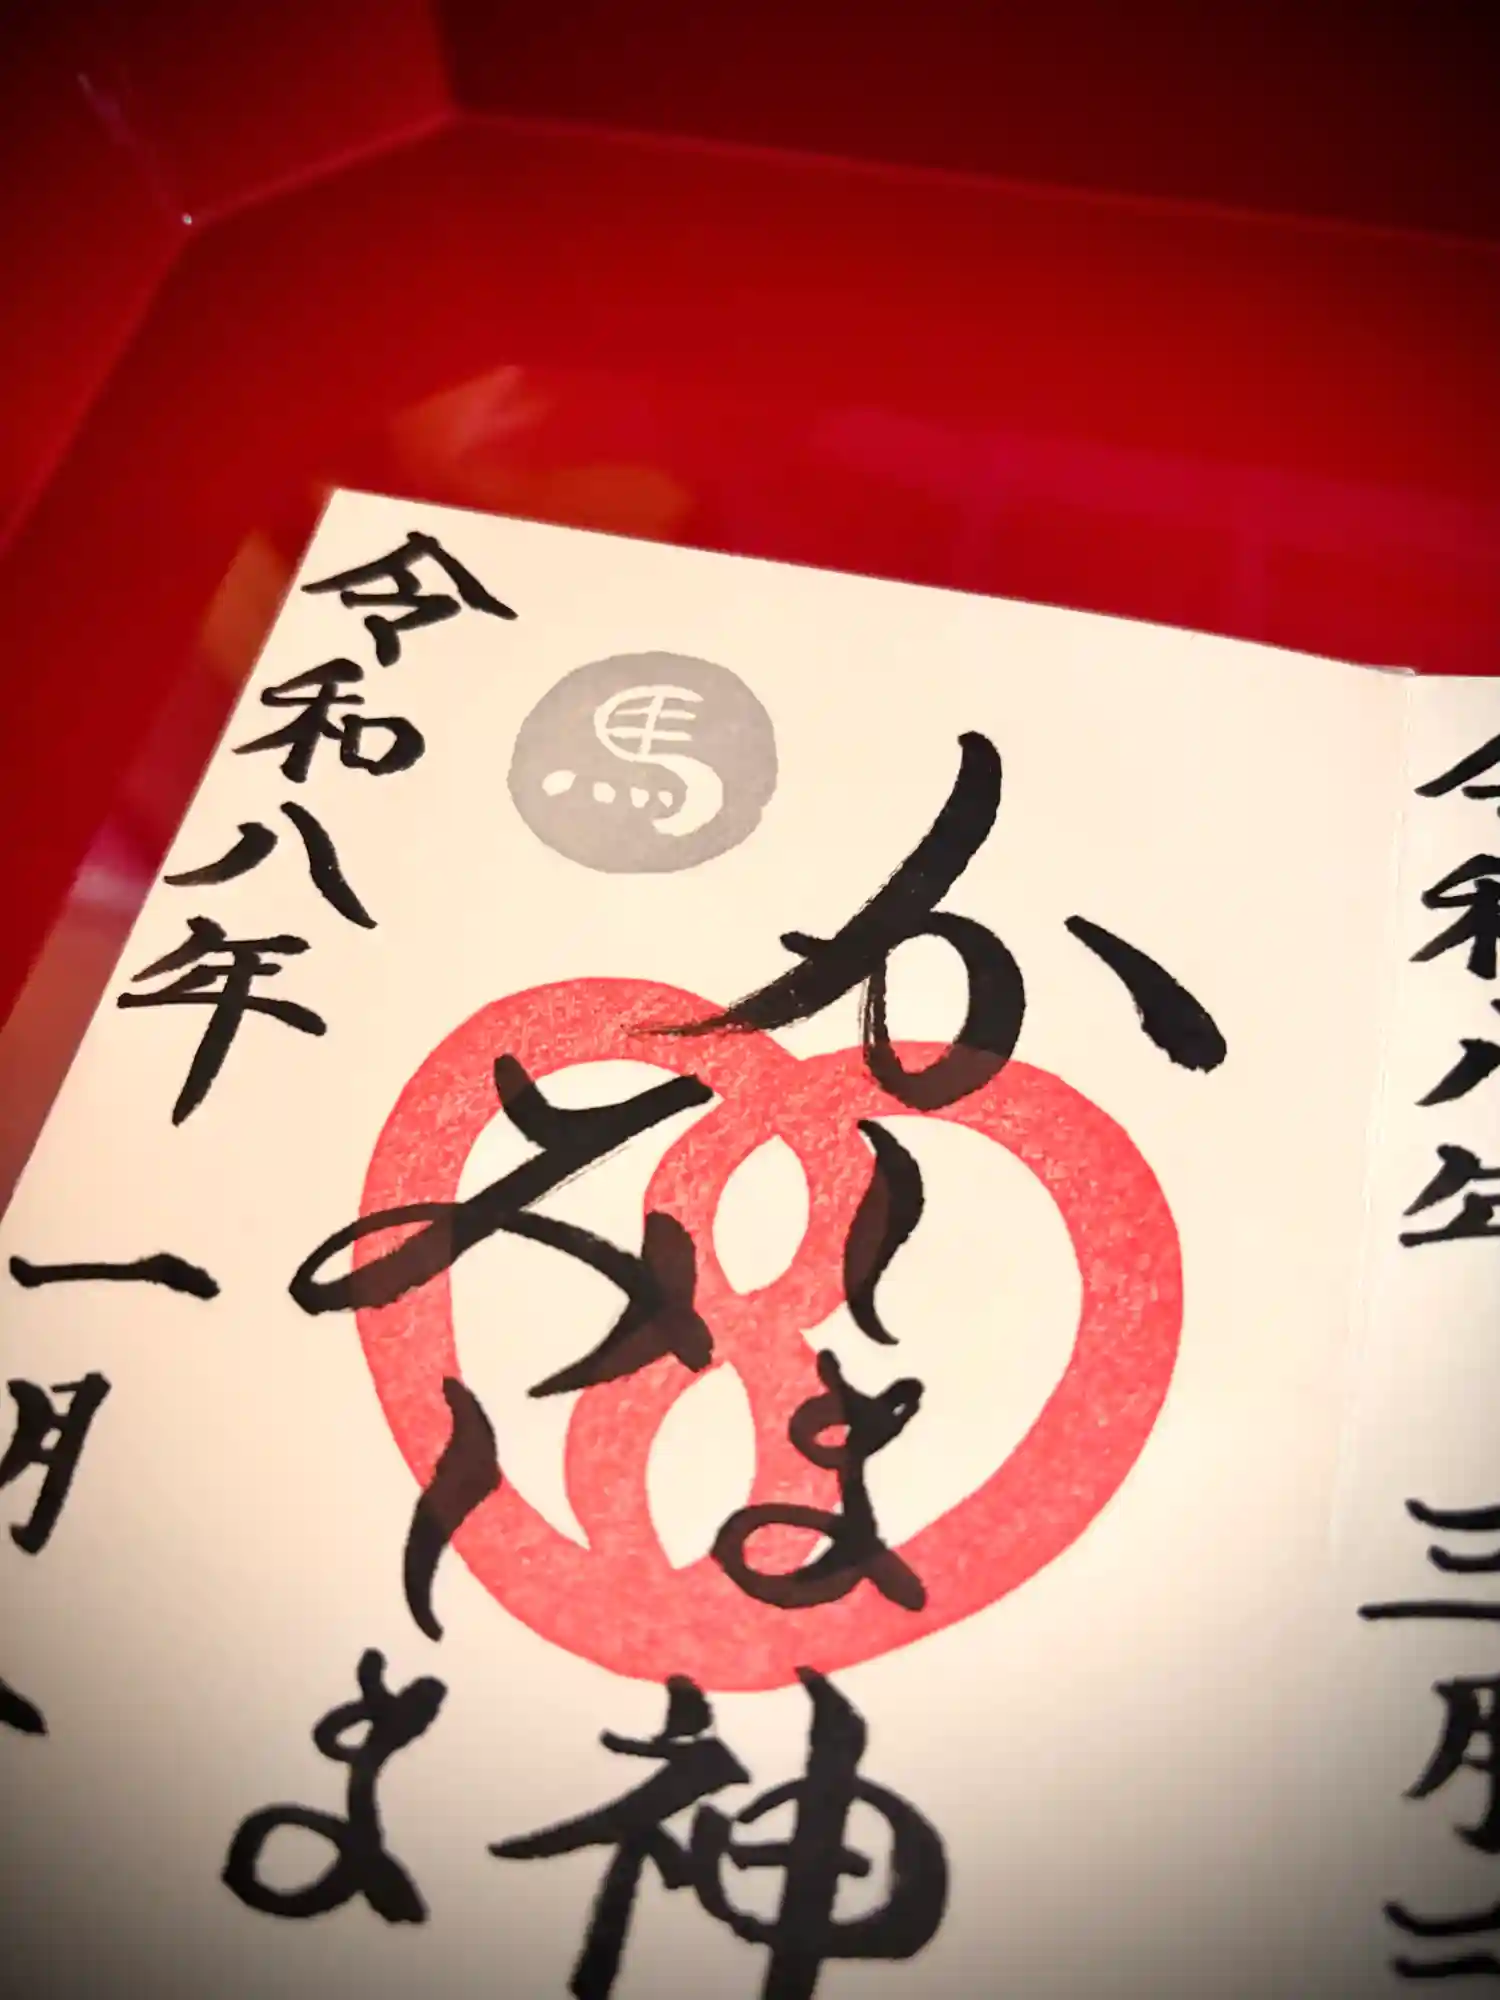 令和八年 三月
かしま神
みしま
馬
令和八年 一月